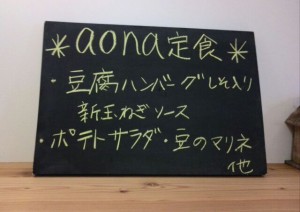 *aona定食*
・豆腐ハンバーグしそ入り
新玉ねぎソース
・ポテトサラダ・豆のマリネ
他